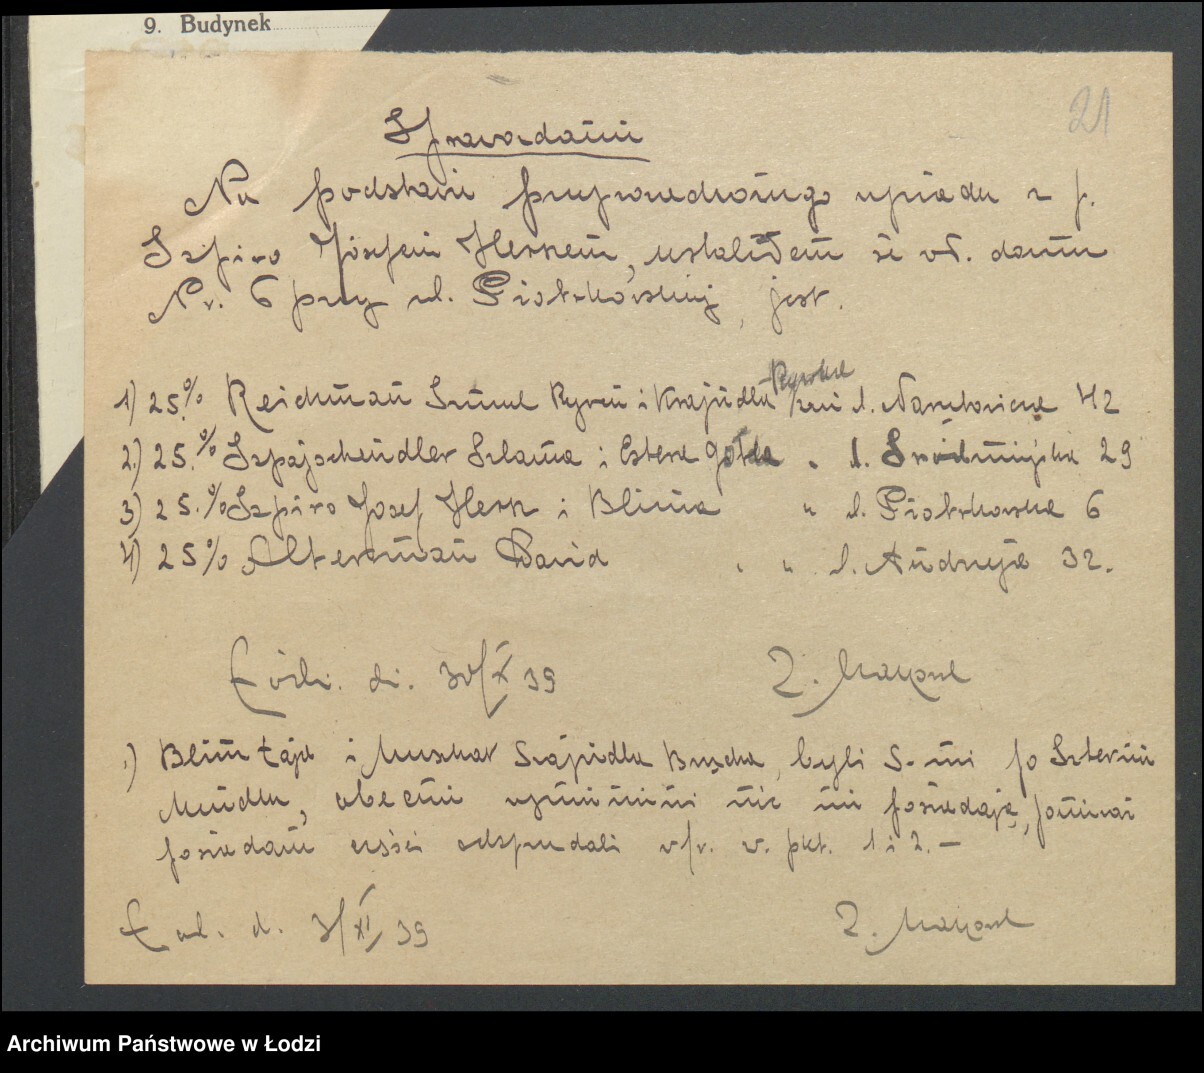 9. Budynek
21
Sprawozdanie
Na podstawie przeprowadzonego wywiadu z p.
Szpiro Józefem Herszem, ustaliłem że wł. domu
Nr. 6 przy ul. Piotrkowskiej, jest.
1) 25% Reichman Szmul i Krajndla zam. ul. Narutowicza 42
2.) 25.% Szpajschendler Szlama i Estera Gołda " ul. Śródmiejska 29
3) 25.% Szpiro Josef Hersz i Blima " ul. Piotrkowska 6
4) 25% Alterman Dawid " " ul. Andrzeja 32.
Łódź. dn. 30/X 39
Z.
Blim Łaja i Szajndla, byli S-mi po Szternie
Mendlu, obecnie nic nie posiadają, ponieważ
posiadane części odsprzedali w. pkt. 1 i 2. –
Łódź. d. 3/XI 39
Z.
Archiwum Państwowe w Łodzi